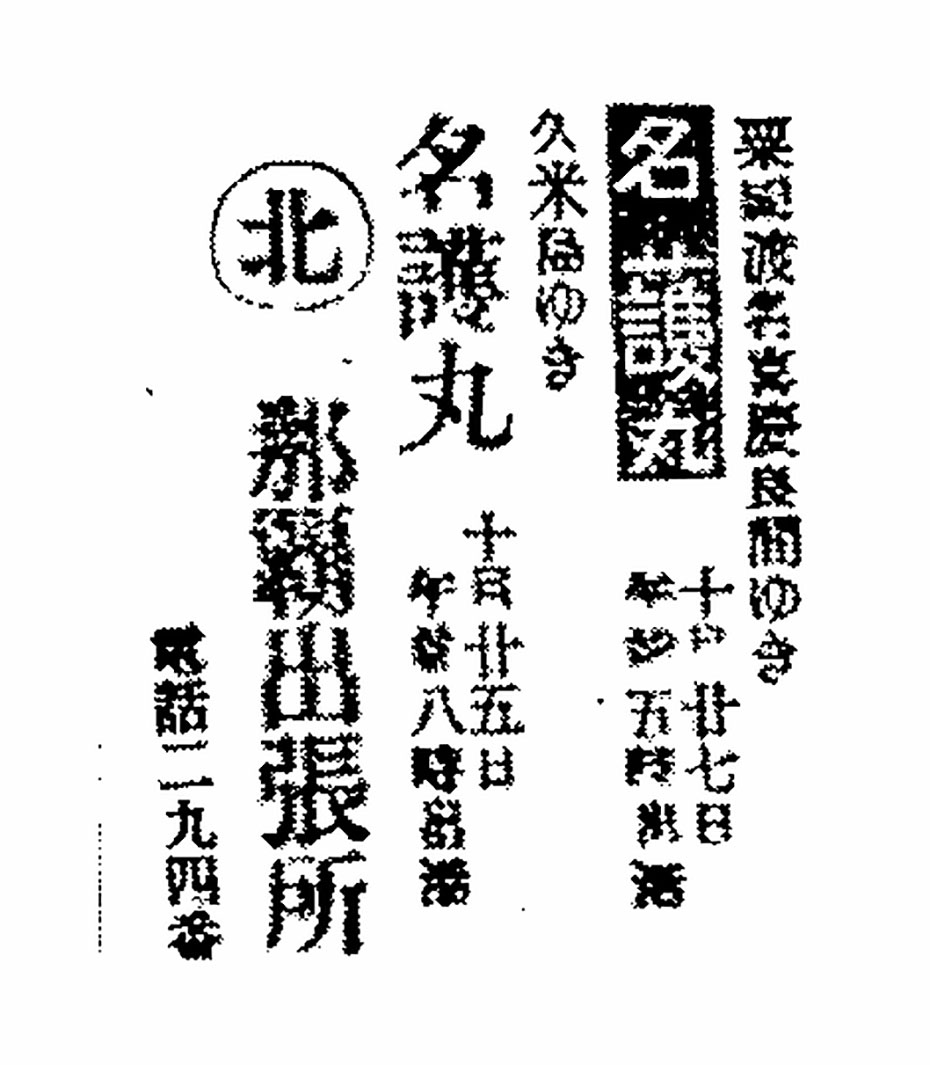 粟國渡名喜慶良間ゆき
名護丸
十月廿七日
午後五時出港
久米島ゆき
名護丸
十月廿五日
午後八時出港
北
那覇出張所
電話二九四番